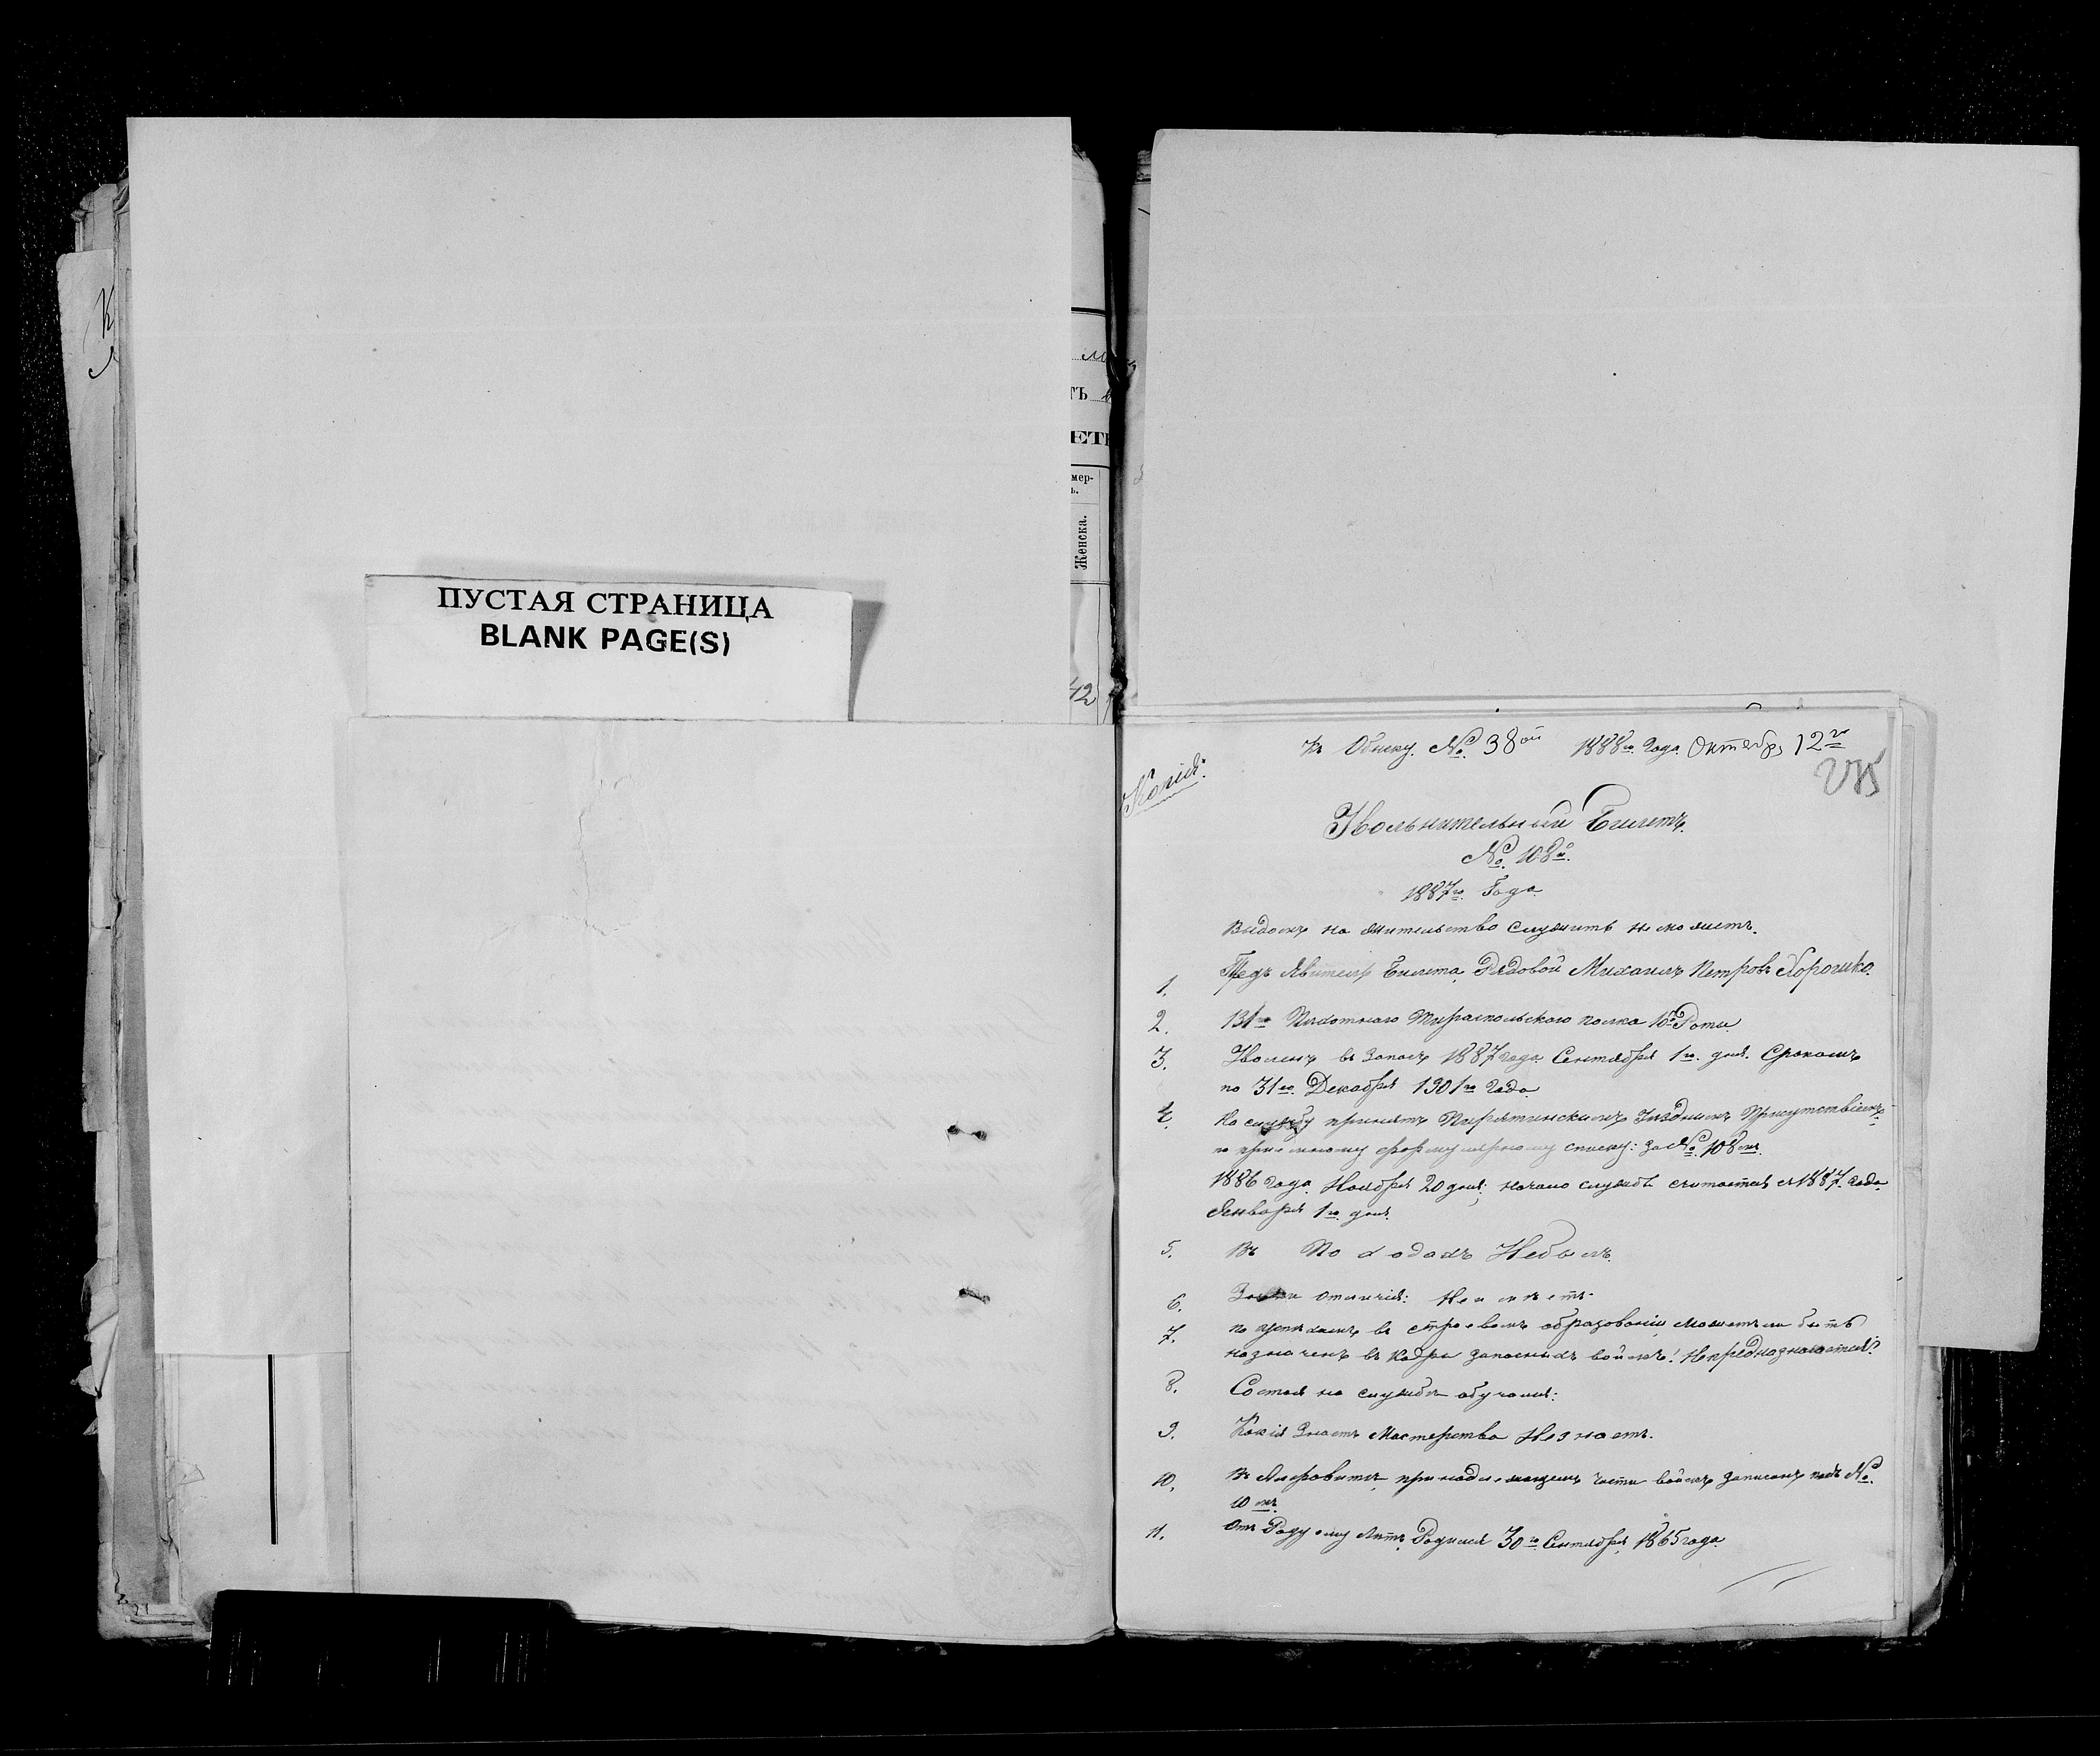 ПУСТАЯ СТРАНИЦА
BLANK PAGE(S)
мер-
ъ.
Женска.
42
Къ Обыску. №. 38ой 1888го. Года Октября 12го
Копія:
Увольнительный Билетъ.
№. 108й.
1887го. Года
Видомъ на жительство служить не можетъ.
1. Билета, Рядовой Михаилъ Петровъ
2. 131го Пѣхотнаго Тираспольскаго полка 10й Роты
3. Уволенъ въ Запасъ 1887 года Сентября 1го. дня. Срокомъ
по 31го. Декабря 1901го Года
4. На службу принятъ Пирятинскимъ Уѣзднымъ Присутствіемъ
по пріемному формулярному списку: за №. 108мъ.
1886 Года Ноября 20 дня; начало службы считается съ 1887. Года
Января 1го. дня.
5. Въ Походахъ Небылъ.
6. Знаки отличія: Неимѣетъ.
7. по успѣхамъ въ строевомъ образованіи можетъ ли быть
назначенъ въ Кадры запасныхъ войскъ!
8. Состоя на службѣ обучался:
9. Какія Знаетъ Мастерства Незнаетъ.
10. Въ Алфавитѣ принадлежащемъ части войскъ записанъ подъ №.
10мъ.
11. Отъ Роду ему Лѣтъ, Родился 30го Сентября, 1865 года